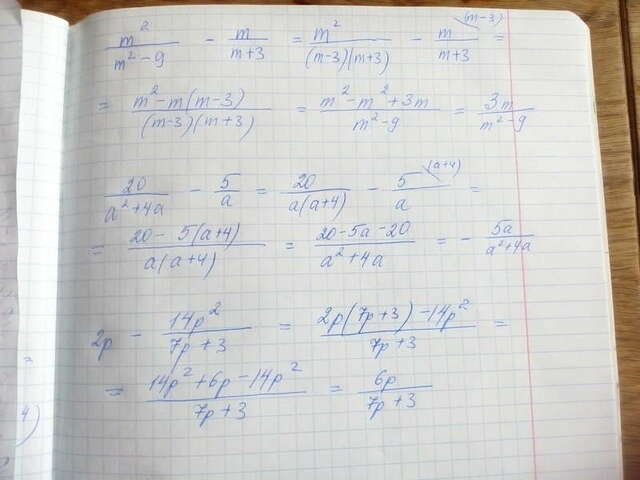 m²/(m²-9) - m/(m+3) = m²/((m-3)(m+3)) - m/(m+3) (m-3) =
= (m²-m(m-3))/((m-3)(m+3)) = (m²-m²+3m)/(m²-9) = 3m/(m²-9)
20/(a²+4a) - 5/a = 20/(a(a+4)) - 5/a (a+4) =
= (20-5(a+4))/(a(a+4)) = (20-5a-20)/(a²+4a) = - 5a/(a²+4a)
2p - 14p²/(7p+3) = (2p(7p+3)-14p²)/(7p+3) =
= (14p²+6p-14p²)/(7p+3) = 6p/(7p+3)
=
4)